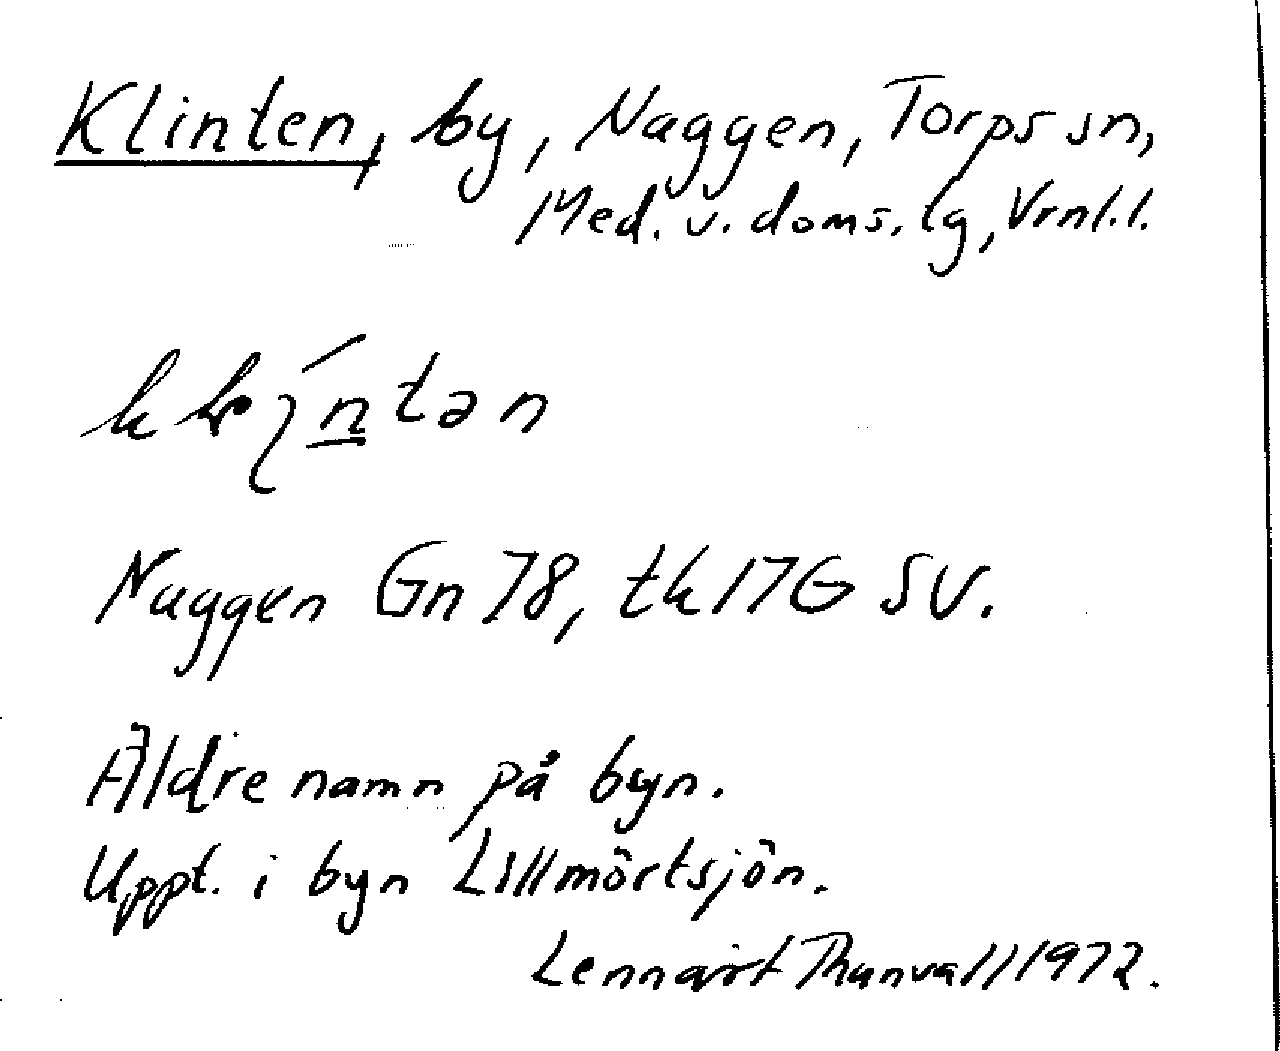 Klinten, by, Naggen, Torps sn,
Med. v. doms. tg, Vrnl. l.
Naggen Gn 78, tk 17G SV.
Äldre namn på byn.
Uppt. i byn Lillmörtsjön.
Lennart Thunvall 1972.